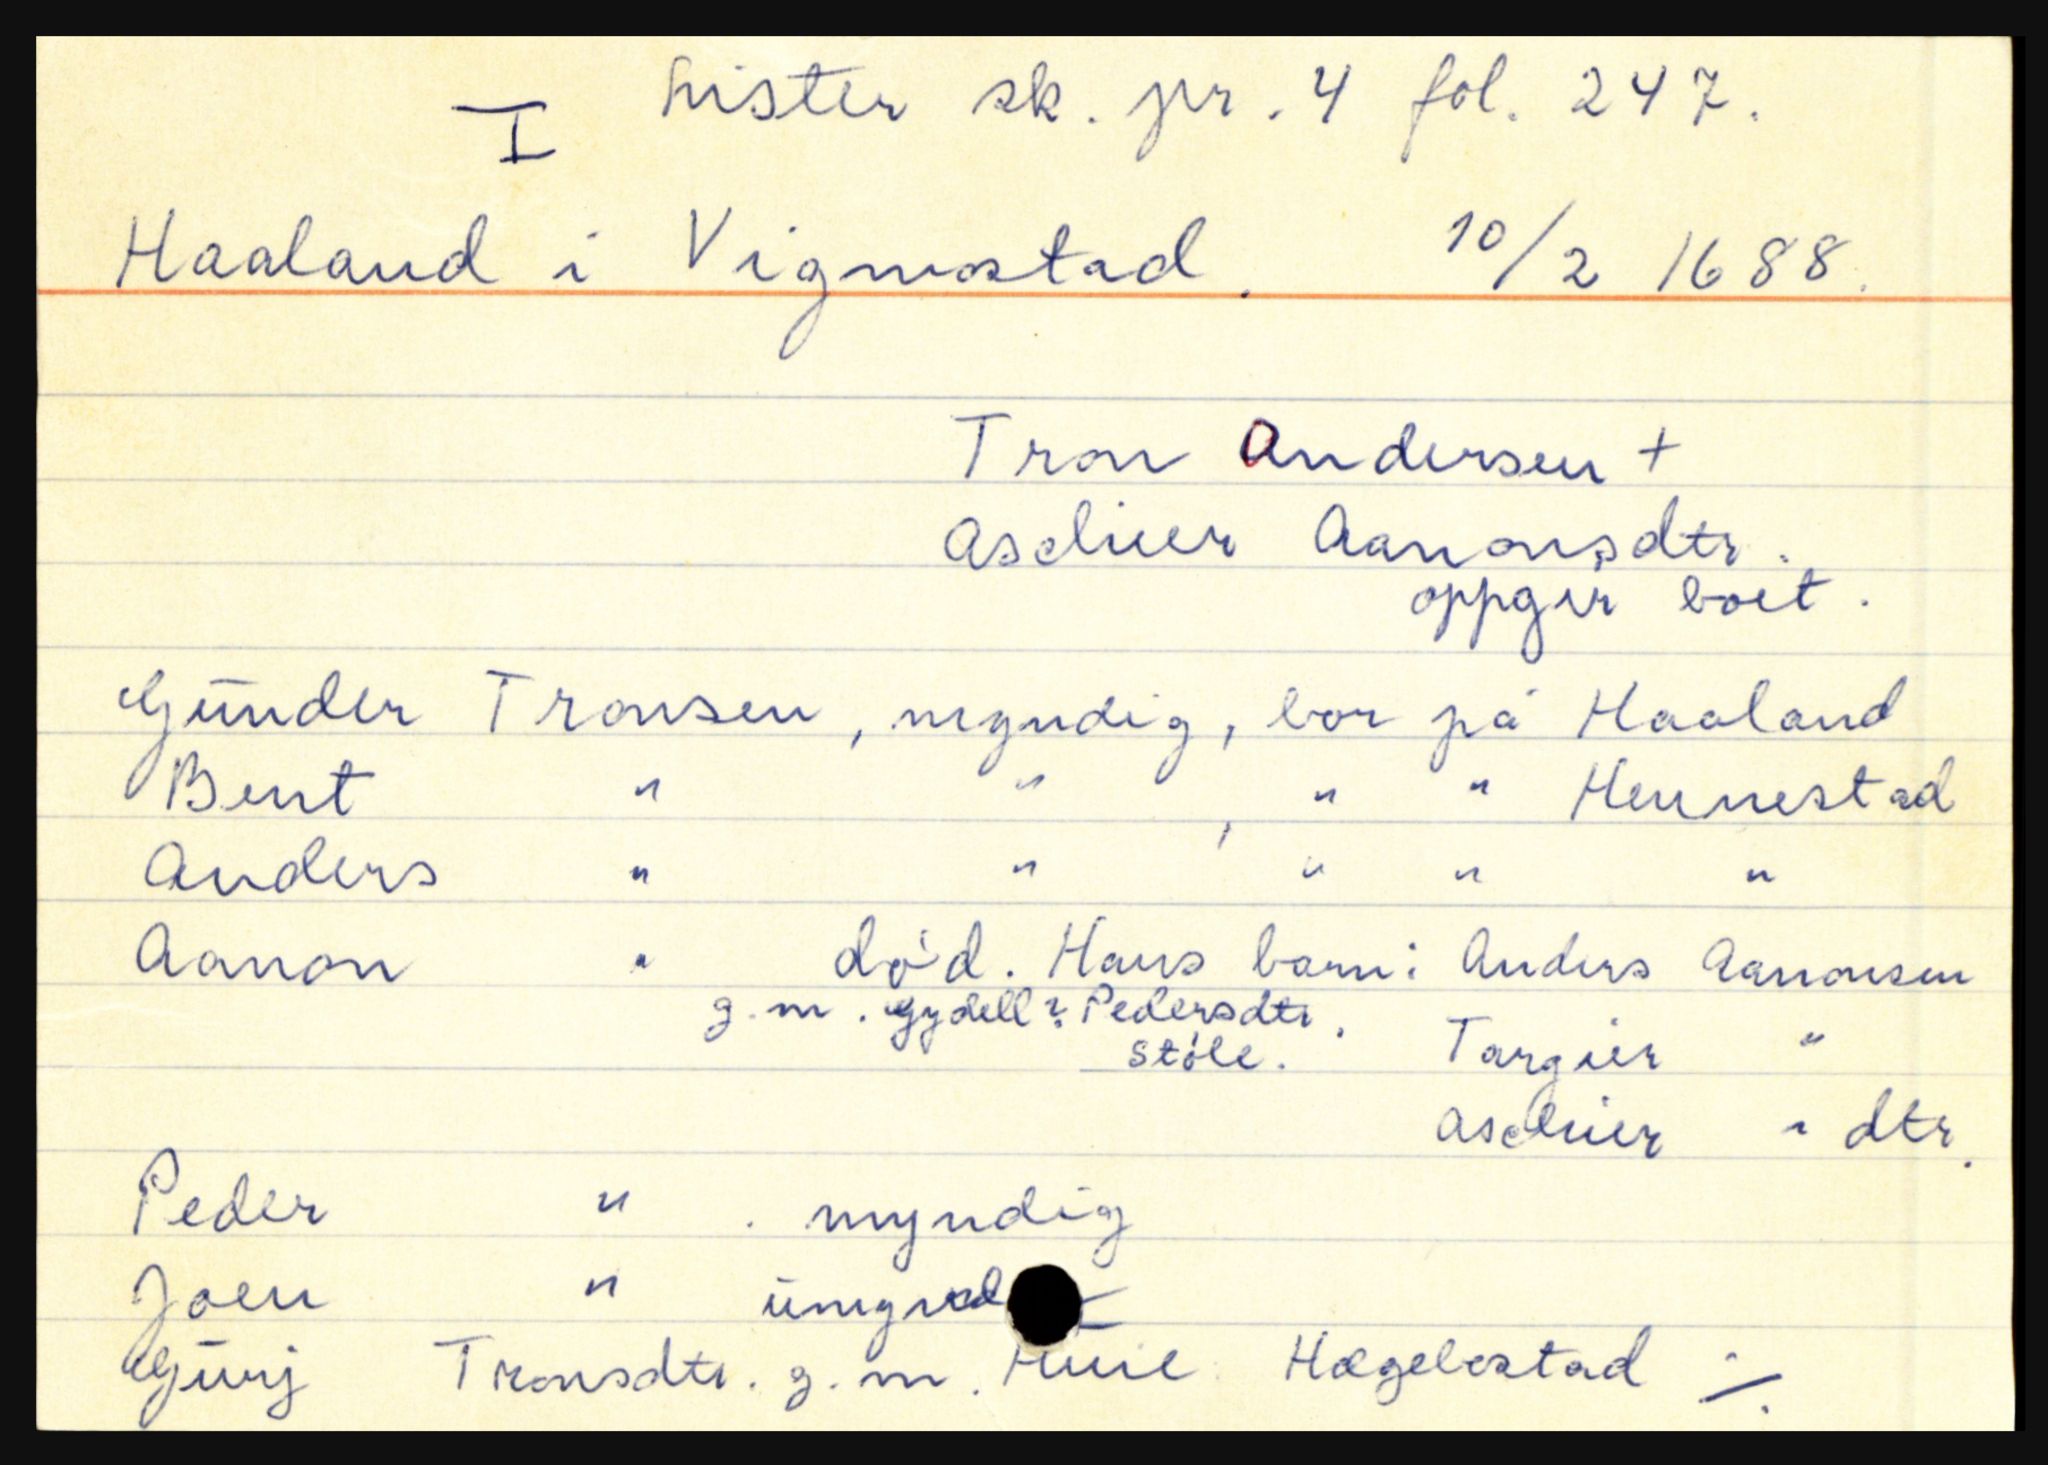 I Lister sk. pr. 4 fol. 247.
Haaland i Vigmostad. 10/2 1688.
Tron Andersen +
Aschier Aanonsdtr.
oppgir boet.
Gunder Tronsen, myndig, bor på Haaland
Bent " " , " " Hennestad
Anders " " " " "
Aanon " død. Hans barn: Anders Aanonsen
g.m. Gydell? Pedersdtr. Targier "
Støle.
Aschier " dtr.
Peder " . myndig
Joen " umynd
Gurj Tronsdtr. g.m. Hægebostad ./.